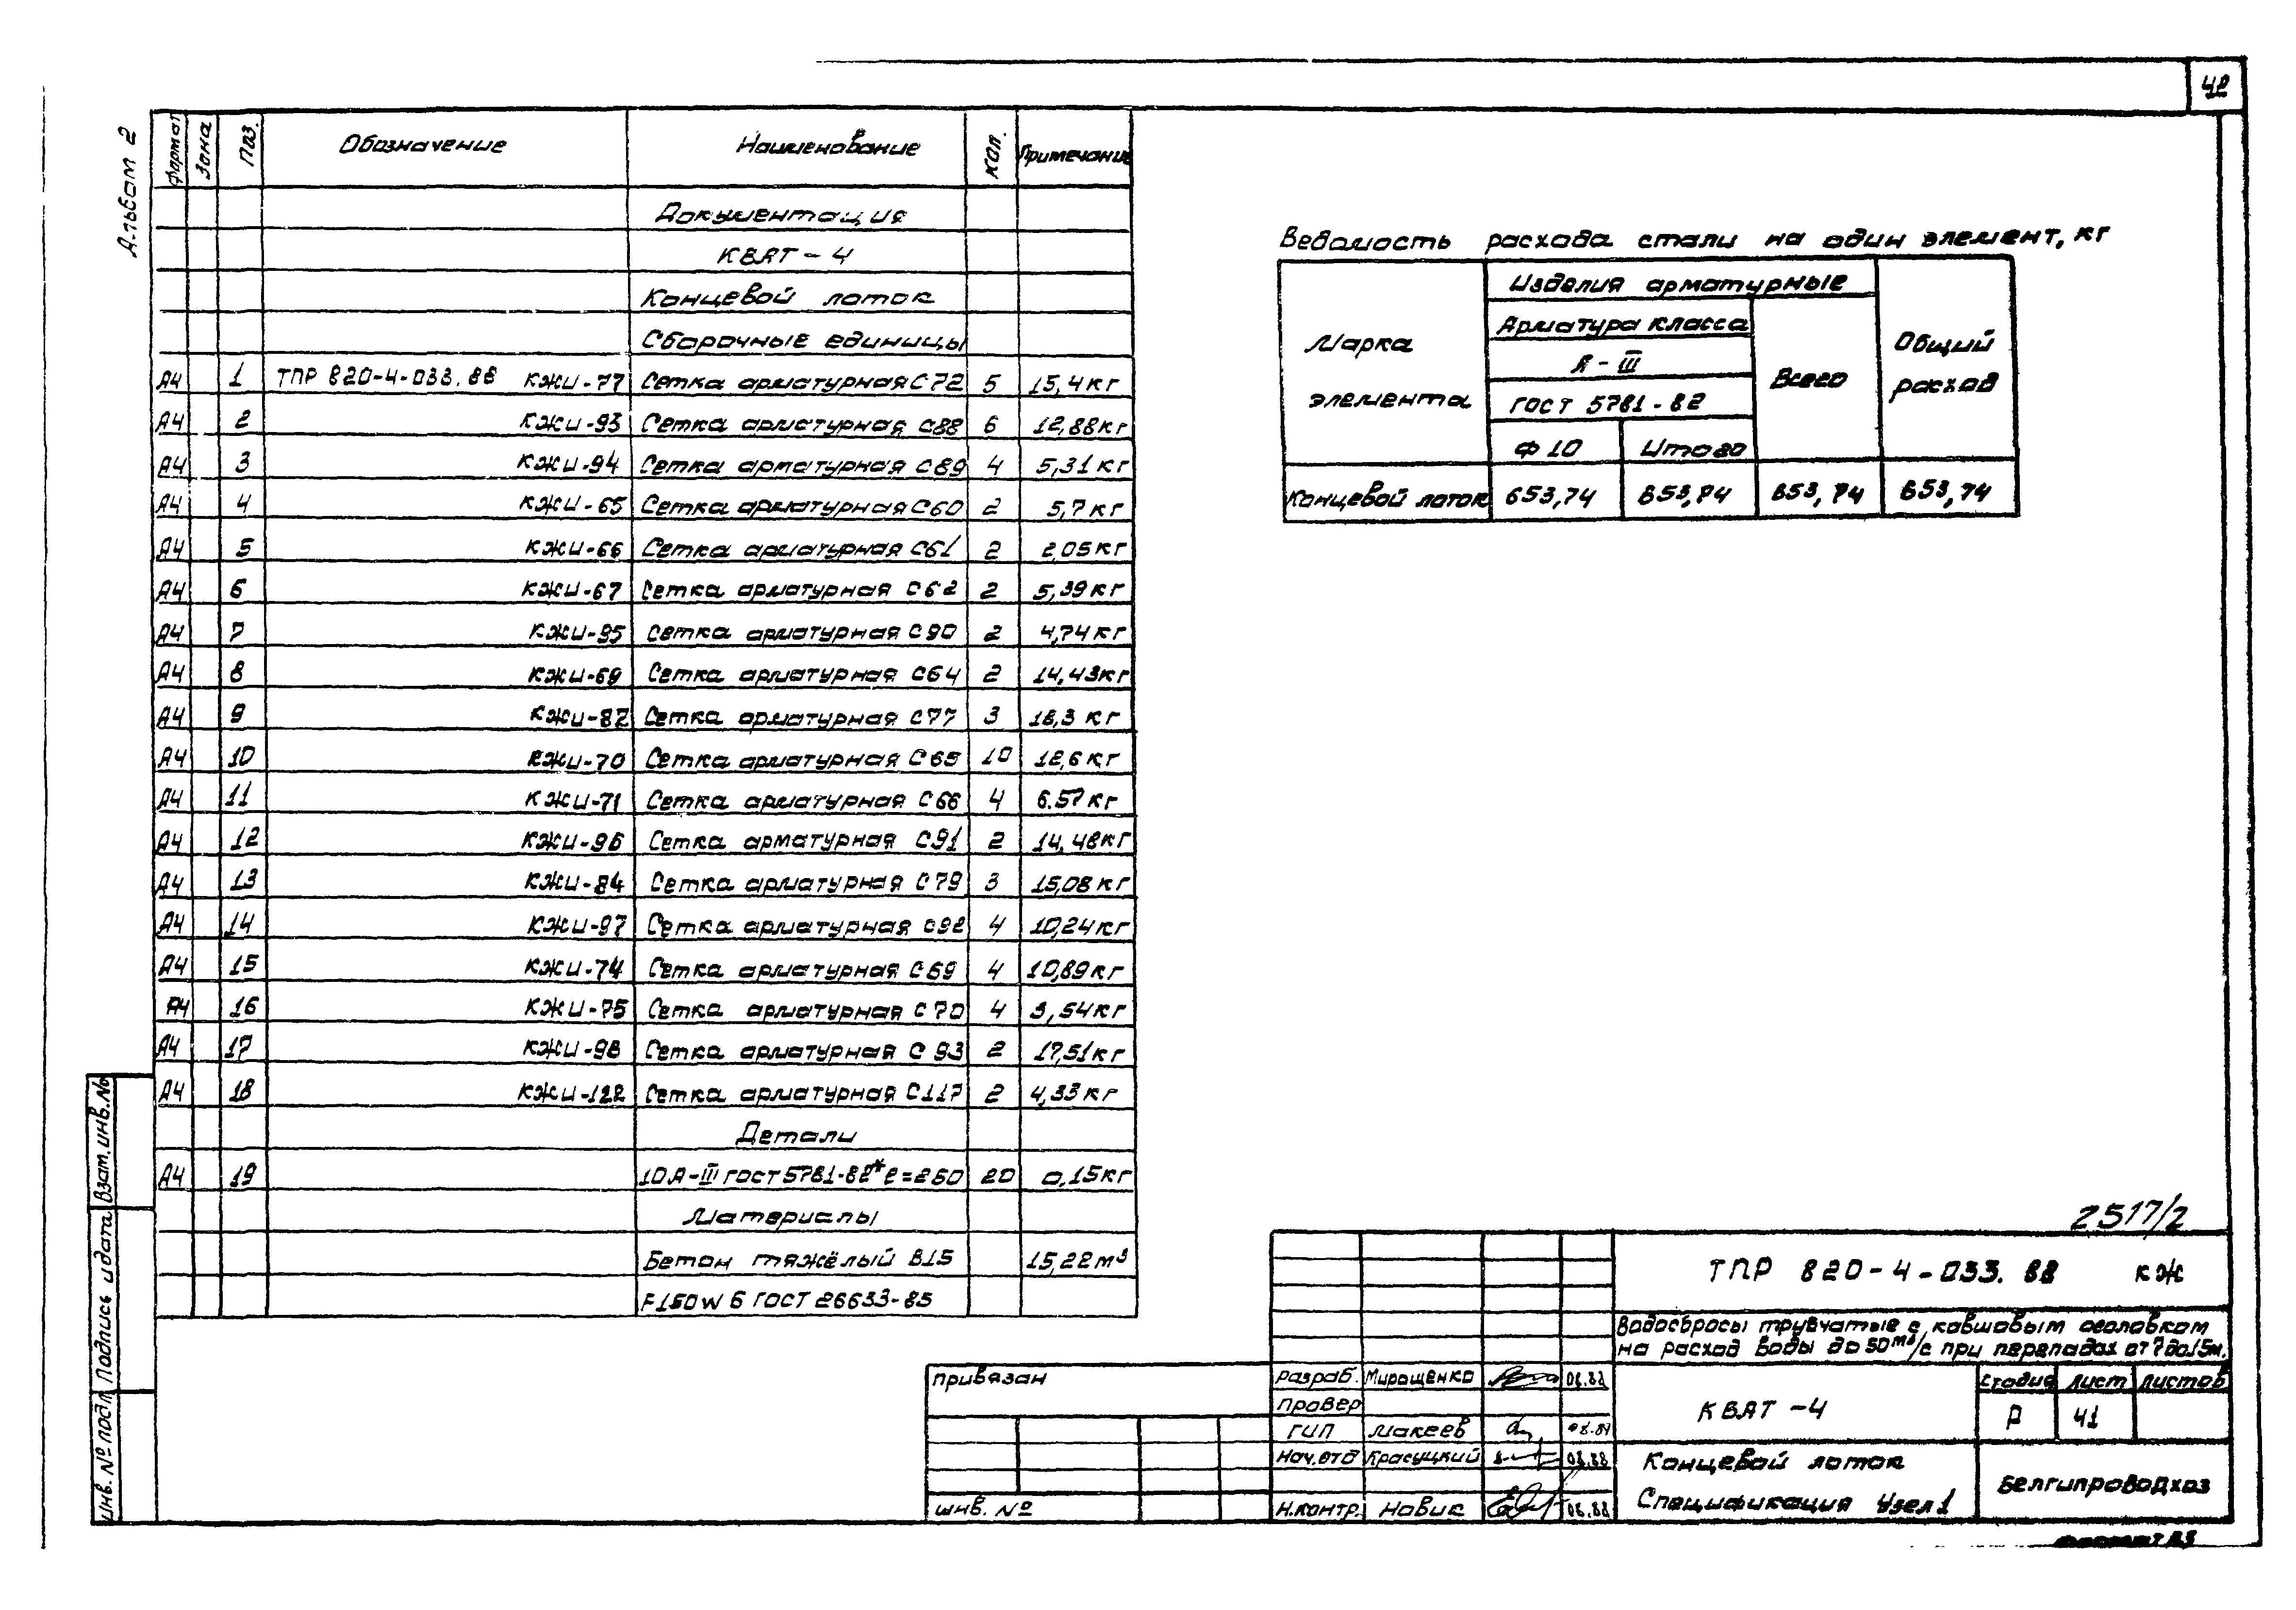 42
Альбом 2
Формат Зона Поз. Обозначение Наименование Кол. Примечание
Документация
КВАТ-4
Концевой лоток
Сборочные единицы
А4 1 ТПР 820-4-033.88 КЖИ-77 Сетка арматурная С72 5 15,4кг
А4 2 КЖИ-93 Сетка арматурная С88 6 12,88кг
А4 3 КЖИ-94 Сетка арматурная С89 4 5,31кг
А4 4 КЖИ-65 Сетка арматурная С60 2 5,7кг
А4 5 КЖИ-66 Сетка арматурная С61 2 2,05кг
А4 6 КЖИ-67 Сетка арматурная С62 2 5,39кг
А4 7 КЖИ-95 Сетка арматурная С90 2 4,74кг
А4 8 КЖИ-69 Сетка арматурная С64 2 14,43кг
А4 9 КЖИ-82 Сетка арматурная С77 3 18,3 кг
А4 10 КЖИ-70 Сетка арматурная С65 10 12,6кг
А4 11 КЖИ-71 Сетка арматурная С66 4 6.57кг
А4 12 КЖИ-96 Сетка арматурная С91 2 14,48кг
А4 13 КЖИ-84 Сетка арматурная С79 3 15,08кг
А4 14 КЖИ-97 Сетка арматурная С92 4 10,24кг
А4 15 КЖИ-74 Сетка арматурная С69 4 10,89кг
А4 16 КЖИ-75 Сетка арматурная С70 4 3,54кг
А4 17 КЖИ-98 Сетка арматурная С93 2 17,51кг
А4 18 КЖИ-122 Сетка арматурная С117 2 4,33кг
Детали
А4 19 10А-III ГОСТ5781-82* ℓ=250 20 0,15кг
Материалы
Бетон тяжёлый В15 15,22м³
F150W6 ГОСТ 26633-85
Ведомость расхода стали на один элемент, кг
Марка элемента Изделия арматурные Общий расход
Арматура класса Всего
А-III
ГОСТ 5781-82
Ф10 Итого
Концевой лоток 653,74 653,74 653,74 653,74
Взам.инв.№
Подпись и дата
Инв.№ подл
2517/2
ТПР 820-4-033.88 КЖ
Водосбросы трубчатые с ковшовым оголовком
на расход воды до 50м³/с при перепадах от 7 до 15м.
Привязан
Инв.№
Разраб. Мирощенко 08.88
Провер
ГИП Макеев
Нач.отд Красуцкий 08.88
Н.контр. Новик 08.88
КВАТ-4
Стадия Лист Листов
Р 41
Концевой лоток
Спецификация Узел 1
Белгипроводхоз
Формат А3